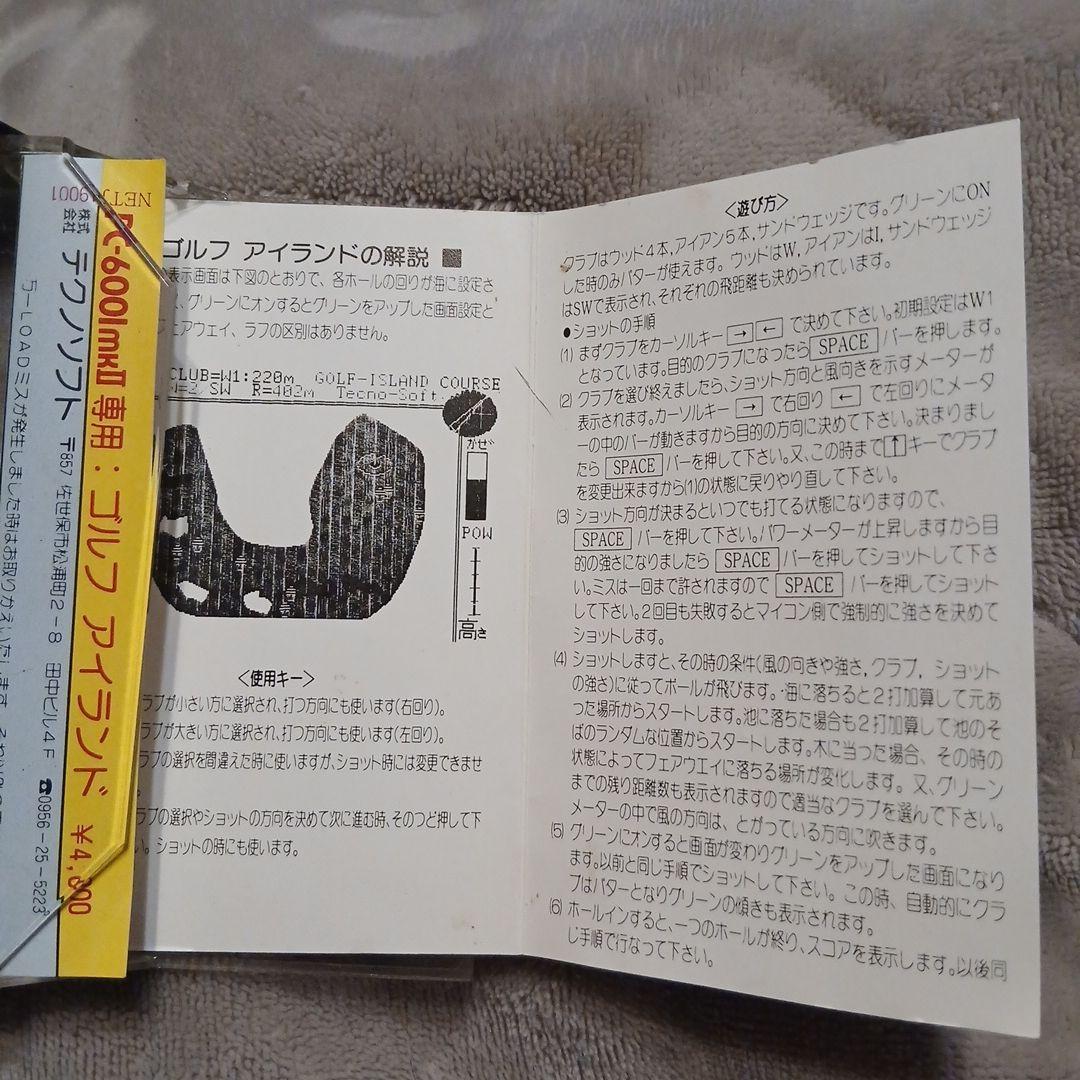 NETJ-9001
PC-6001mkII 専用：ゴルフ アイランド ¥4,800
株式会社 テクノソフト 〒857 佐世保市松浦町2－8 田中ビル4F ☎0956－25－5223
LOADミスが発生しました時はお取りかえいたします。
ゴルフ アイランドの解説 ■
表示画面は下図のとおりで、各ホールの回りが海に設定さ
、グリーンにオンするとグリーンをアップした画面設定と
ェアウェイ、ラフの区別はありません。
CLUB=W1:220m GOLF-ISLAND COURSE
SW R=402m Tecno-Soft.
かぜ
POW
高さ
〈使用キー〉
ラブが小さい方に選択され、打つ方向にも使います(右回り)。
ラブが大きい方に選択され、打つ方向にも使います(左回り)。
ラブの選択を間違えた時に使いますが、ショット時には変更できませ
。
ラブの選択やショットの方向を決めて次に進む時、そのつど押して下
い。ショットの時にも使います。
〈遊び方〉
クラブはウッド4本，アイアン5本，サンドウェッジです。グリーンにON
した時のみパターが使えます。ウッドはW，アイアンはI，サンドウェッジ
はSWで表示され、それぞれの飛距離も決められています。
●ショットの手順
(1) まずクラブをカーソルキー → ← で決めて下さい。初期設定はW1
となっています。目的のクラブになったら SPACE バーを押します。
(2) クラブを選び終えましたら、ショット方向と風向きを示すメーターが
表示されます。カーソルキー → で右回り ← で左回りにメータ
ーの中のバーが動きますから目的の方向に決めて下さい。決まりまし
たら SPACE バーを押して下さい。又、この時まで ↑ キーでクラブ
を変更出来ますから(1)の状態に戻りやり直して下さい。
(3) ショット方向が決まるといつでも打てる状態になりますので、
SPACE バーを押して下さい。パワーメーターが上昇しますから目
的の強さになりましたら SPACE バーを押してショットして下さ
い。ミスは一回まで許されますので SPACE バーを押してショット
して下さい。2回目も失敗するとマイコン側で強制的に強さを決めて
ショットします。
(4) ショットしますと、その時の条件(風の向きや強さ，クラブ，ショット
の強さ)に従ってボールが飛びます。海に落ちると2打加算して元あ
った場所からスタートします。池に落ちた場合も2打加算して池のそ
ばのランダムな位置からスタートします。木に当った場合、その時の
状態によってフェアウエイに落ちる場所が変化します。又、グリーン
までの残り距離数も表示されますので適当なクラブを選んで下さい。
メーターの中で風の方向は、とがっている方向に吹きます。
(5) グリーンにオンすると画面が変わりグリーンをアップした画面になり
ます。以前と同じ手順でショットして下さい。この時、自動的にクラ
ブはパターとなりグリーンの傾きも表示されます。
(6) ホールインすると、一つのホールが終り、スコアを表示します。以後同
じ手順で行なって下さい。